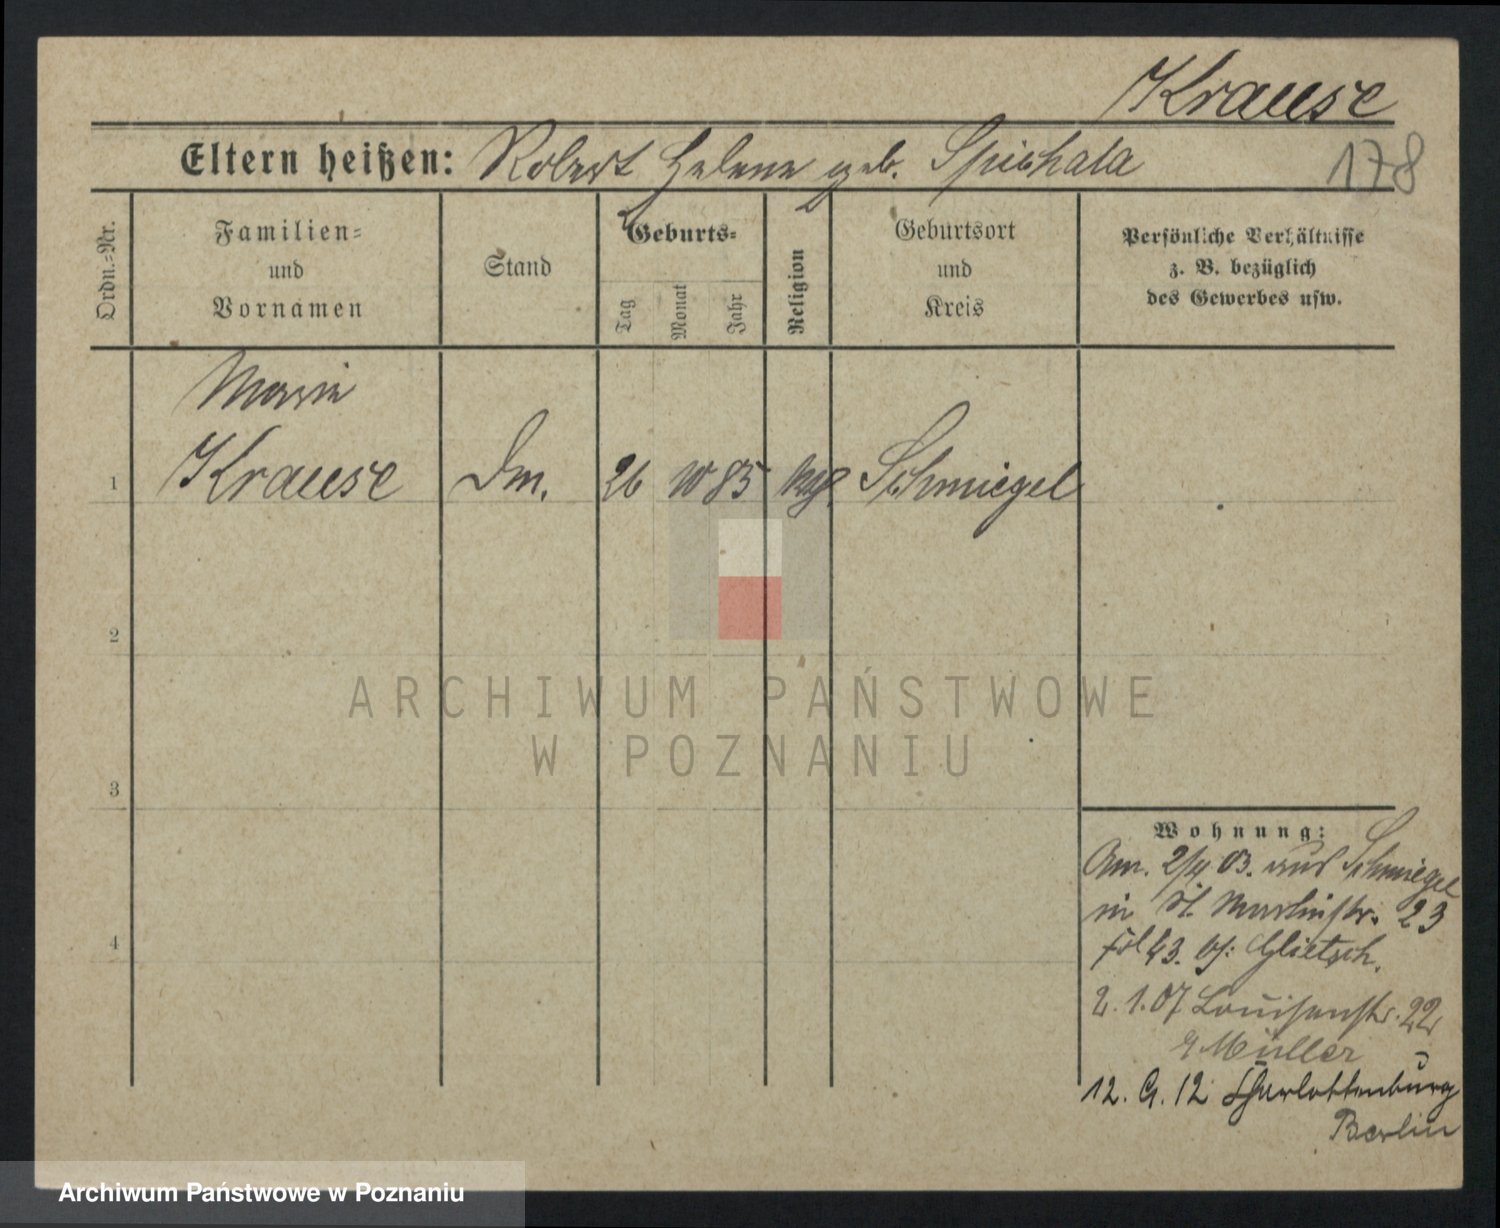 Krause
178
Eltern heißen: Robert Helene geb. Spichala
Ordn.-Nr.
Familien-
und
Vornamen
Stand
Geburts-
Tag
Monat
Jahr
Religion
Geburtsort
und
Kreis
Persönliche Verhältnisse
z. B. bezüglich
des Gewerbes usw.
Marie
1 Krause Dm. 26 10 85 Schmiegel
2
3
4
ARCHIWUM PAŃSTWOWE
W POZNANIU
Wohnung:
2/4 03. aus Schmiegel
in St. Martinstr. 23
Glietsch.
2.1.07 Louisenstr. 22
Müller
12. 9. 12 Charlottenburg
Berlin
Archiwum Państwowe w Poznaniu